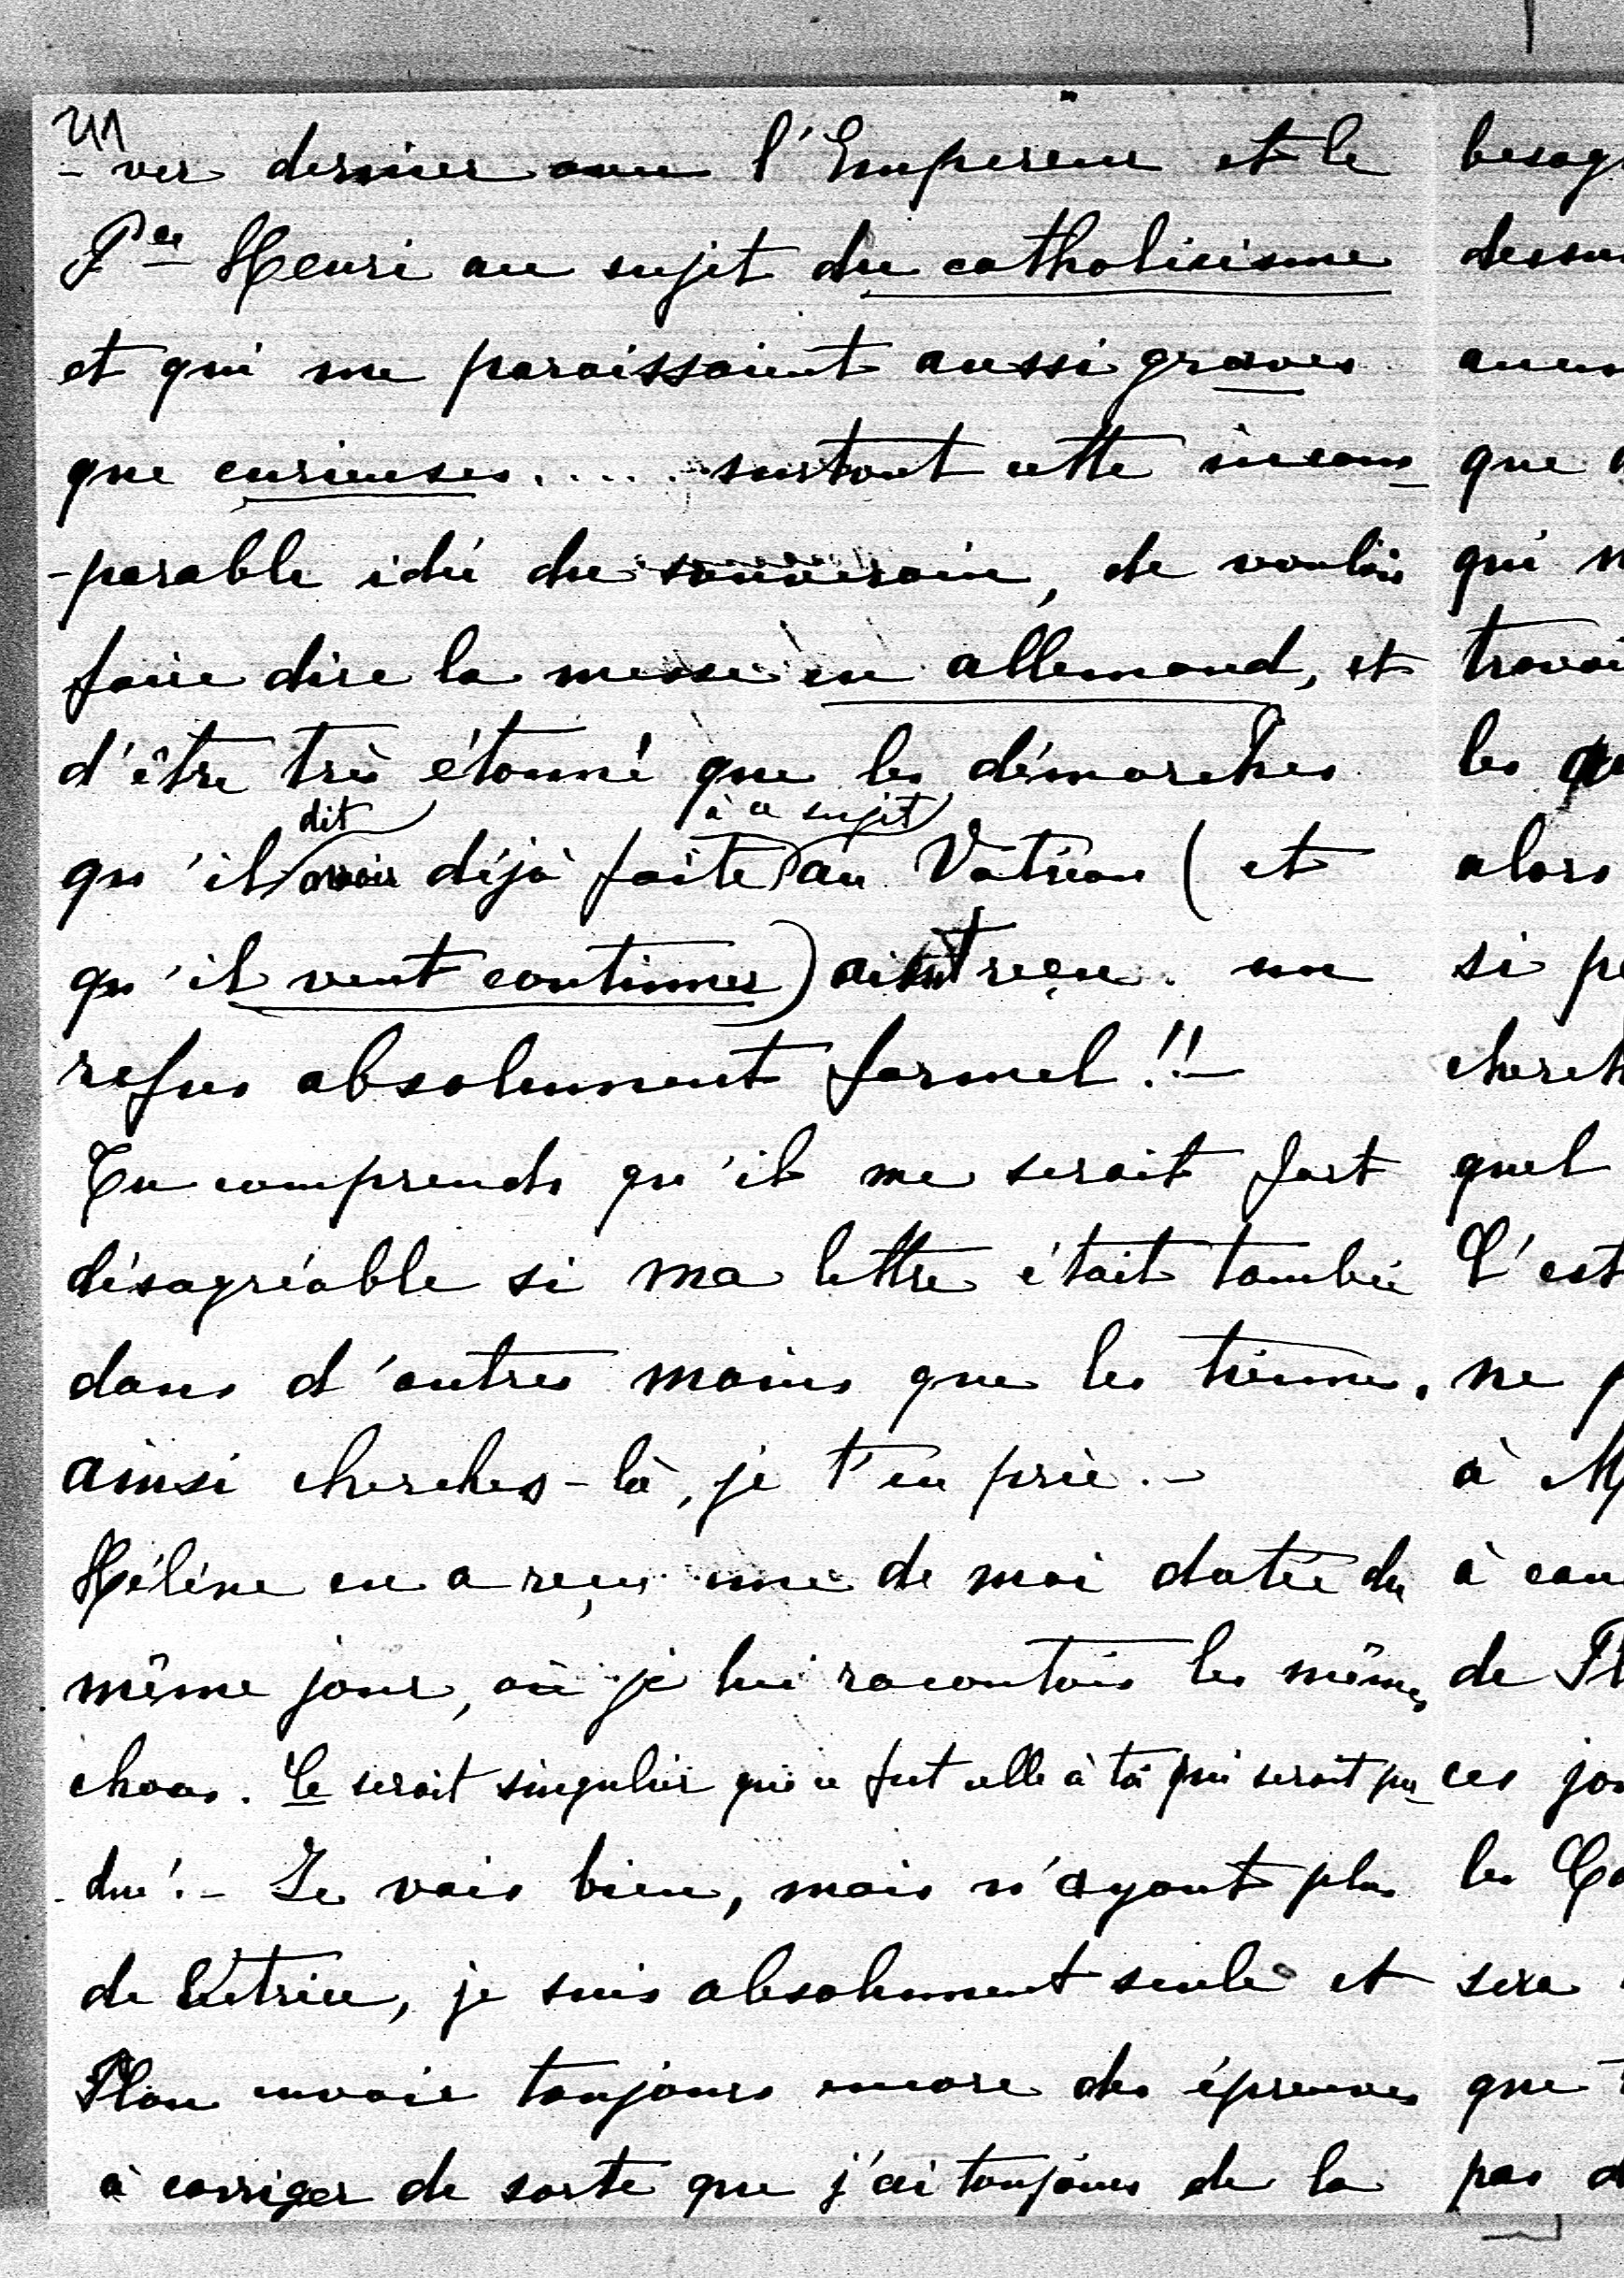 211
- ver dernier avec l'Empereur et le
Pce Henri au sujet du catholicisme
et qui me paraissaient aussi graves
que curieuses..... surtout cette incom-
-parable idée du souverain, de vouloir
faire dire la messe en allemand, et
d'être très étonné que les démarches
dit à ce sujet
qu'il avoir déjà faite au Vatican (et
qu'il veut continuer) aient reçu un
refus absolument formel!! -
Tu comprends qu'il me serait fort
désagréable si ma lettre était tombée
dans d'autres mains que les tiennes,
ainsi cherches-là, je t'en prie. -
Hélène en a reçu une de moi datée du
même jour, où je lui racontais les mêmes
choses. Ce serait singulier que ce fut celle à toi qui serait per-
- due! - Je vais bien, mais n'ayant plus
de lectrice, je suis absolument seule et
Plon envoie toujours encore des épreuves
à corriger de sorte que j'ai toujours de la
besog
dessu
aucun
que
qui
travai
les
alors
si
cherch
quel
C'est
ne
à
à cau
de Pl
ces jou
les
sera
que
pas d